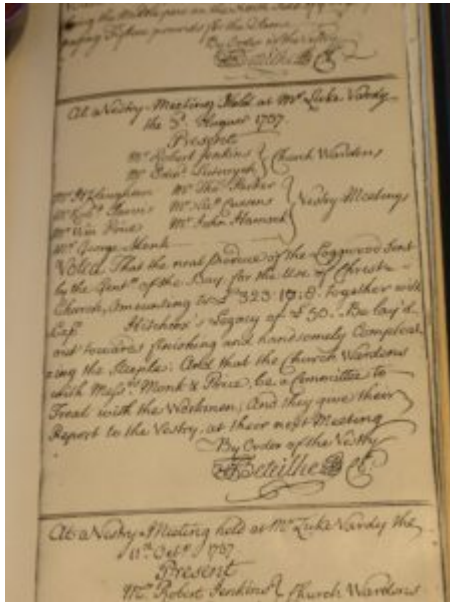 paying Fifteen pounds for the Same
By Order of the Vestry
At a Vestry Meeting Held at Mr Luke Vardy
the 3d. August 1737
Present
Mr Robert Jenkins } Church Wardens
Mr
Mr Tho: Parker
Mr Robt. Harris
Mr Wm Price Mr John Hamock } Vestry Meetings
Mr George Monk
Voted, That the neat produce of the Loggwood Sent
by the Gentn. of the Bay, for the Use of Christ
Church, Amounting to £ 323:19:8. together with
Capt. Hitchcox's Legacy of £50. Be lay'd
out towards finishing and handsomely Compleat
ing the Steeple: And that the Church Wardens
with Messrs. Monk & Price, be a Committee to
Treat with the Workmen; And they give their
Report to the Vestry, at their next Meeting
By Order of the Vestry
At a Vestry Meeting held at Mr Luke Vardy the
Octr. 1737
Present
Mr Robert Jenkins } Church Wardens